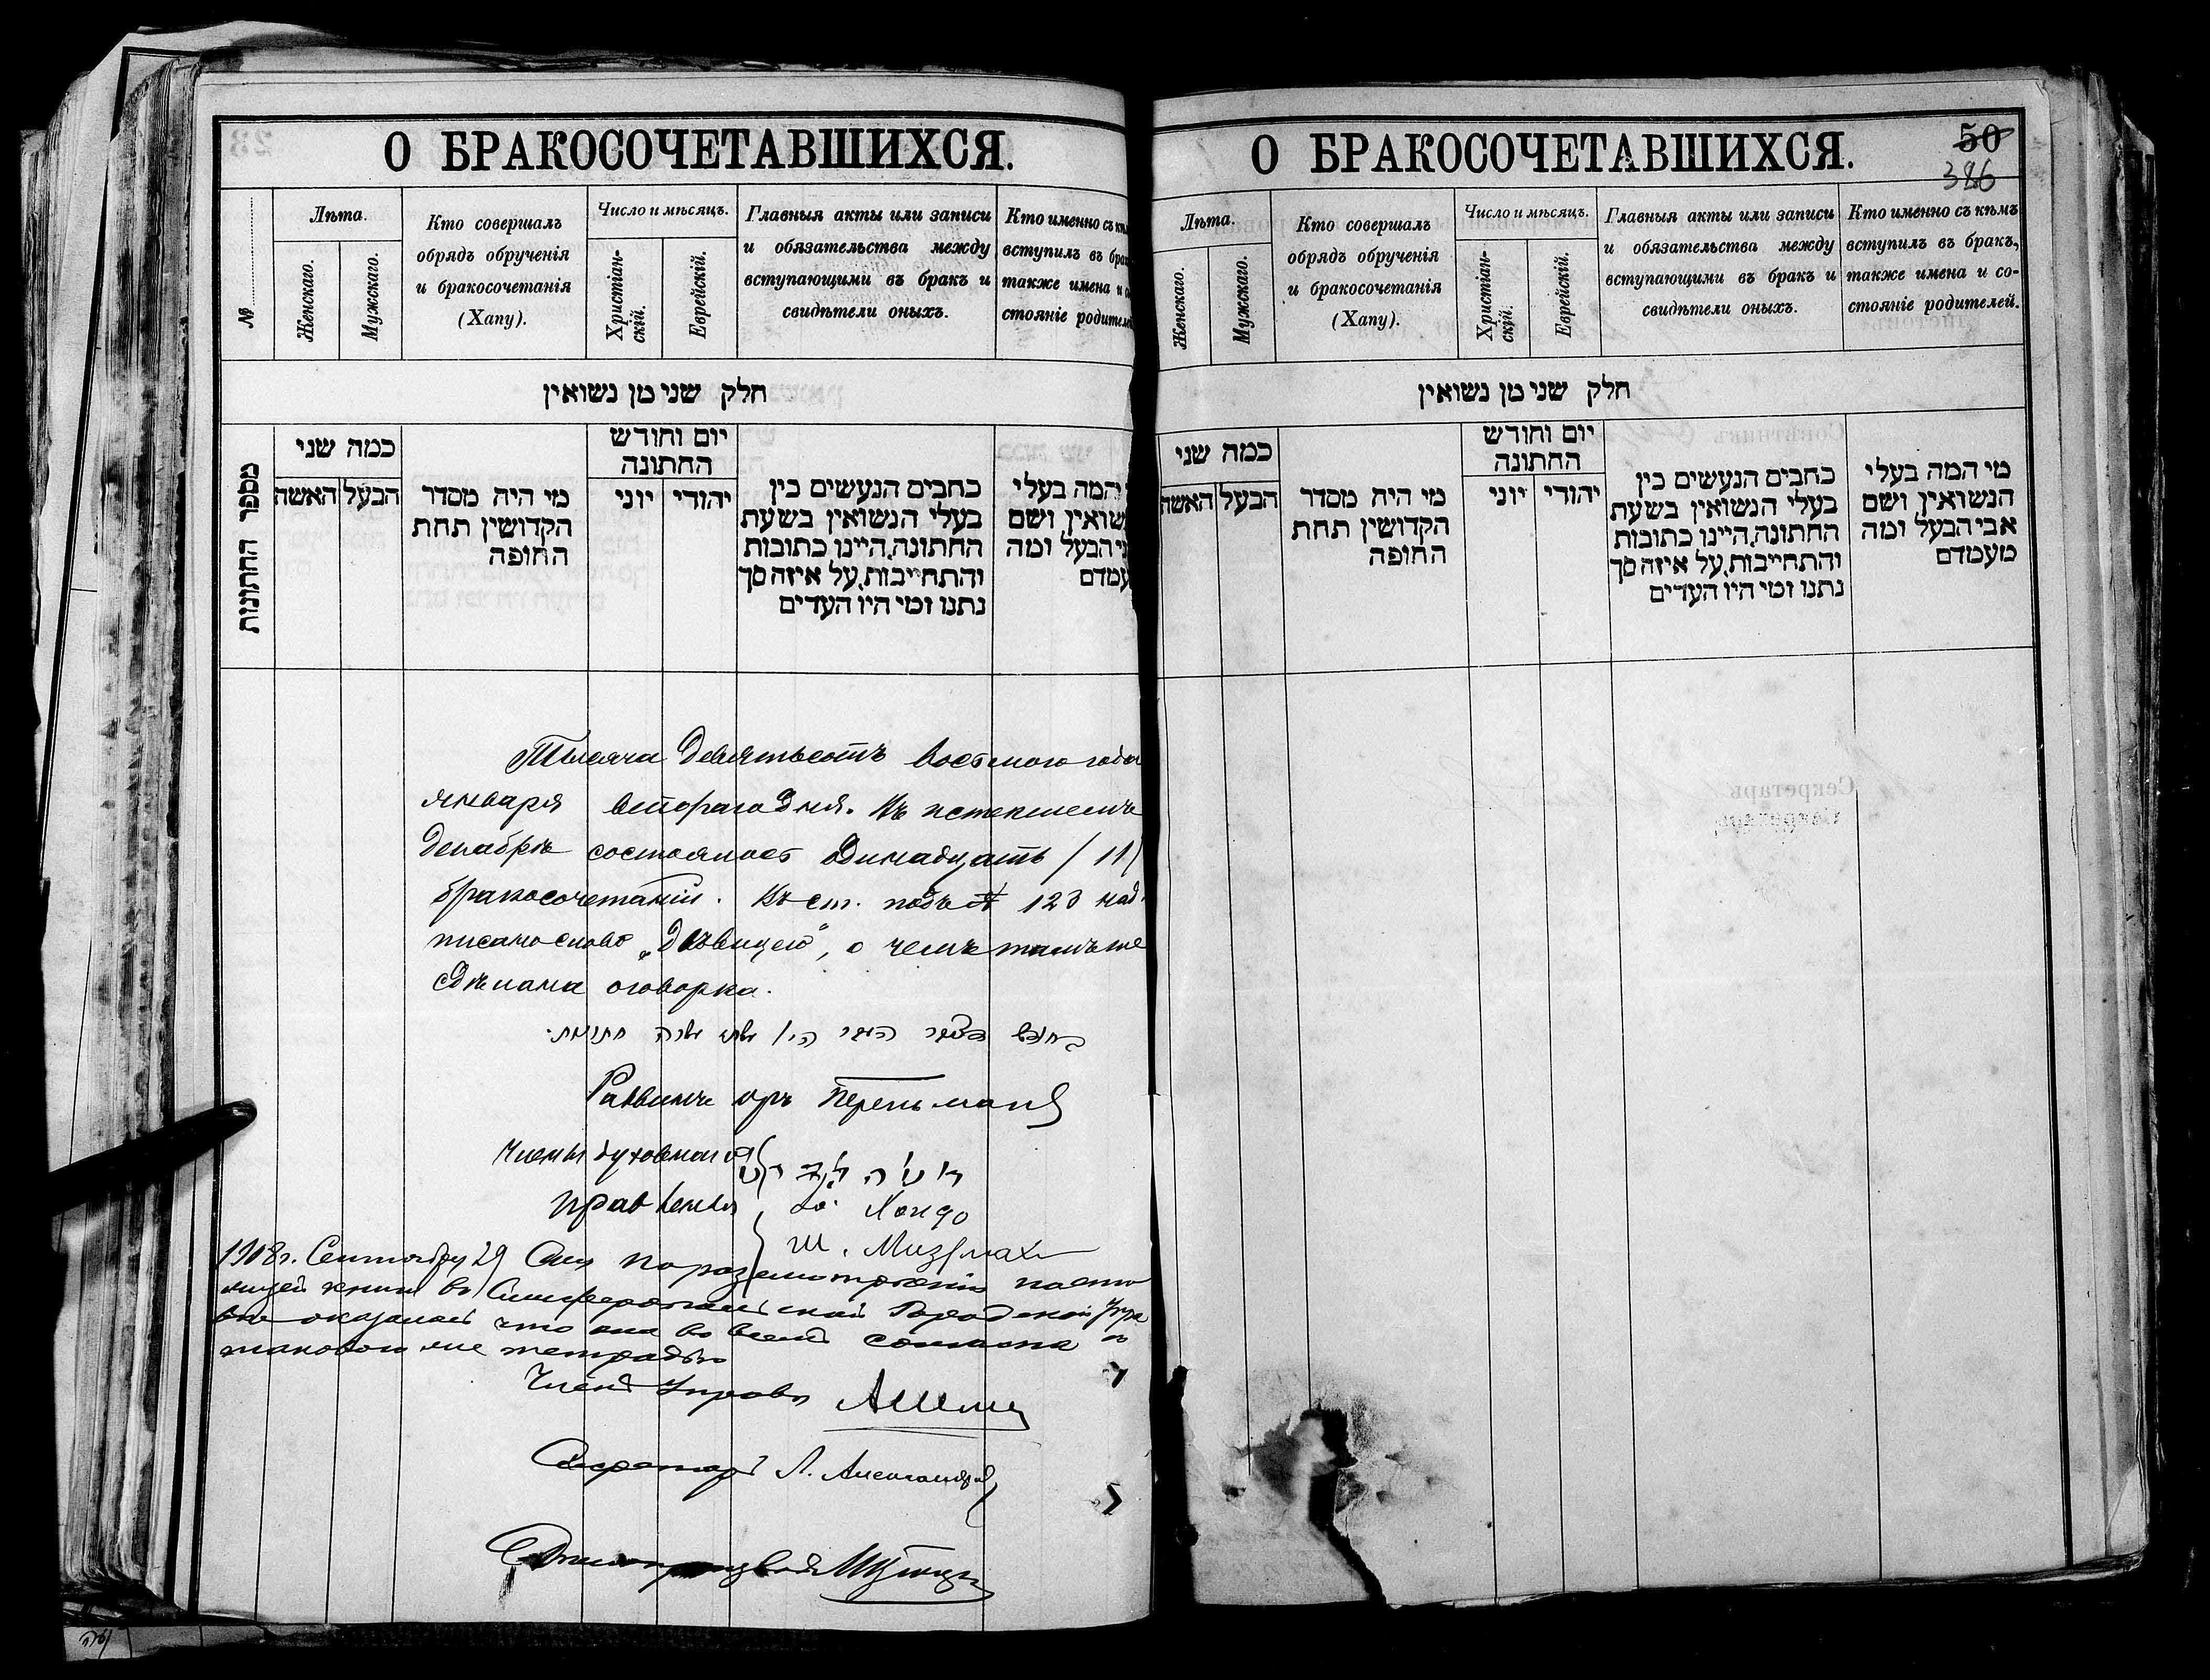 О БРАКОСОЧЕТАВШИХСЯ.
№
Лѣта.
Женскаго.
Мужскаго.
Кто совершалъ
обрядъ обрученія
и бракосочетанія
(Хапу).
Число и мѣсяцъ.
Христіан-
скій.
Еврейскій.
Главныя акты или записи
и обязательства между
вступающими въ бракъ и
свидѣтели оныхъ.
Кто именно съ
вступилъ въ
также имена и
стояніе
חלק שני מן נשואין
מספר החתונות
כמה שני
האשה
הבעל
מי היה מסדר
הקדושין תחת
החופה
יום וחודש
החתונה
יוני
יהודי
כתבים הנעשים בין
בעלי הנשואין בשעת
החתונה, היינו כתובות
והתחייבות, על איזה סך
נתנו ומי היו העדים
המה בעלי
ושם
הבעל ומה
Тысяча девятьсотъ восьмого года
января второго дня. Въ истекшемъ
декабрѣ состоялось одинадцать /11/
бракосочетаній. Въ ст. подъ № 123 над-
писано слово „дѣвицею", о чемъ тамъ же
сдѣлана оговорка.
Раввинъ Перельманъ
Члены духовнаго
правленія
Ш.
1908 г. Сентября 29 дня по разсмотрѣніи насто
ящей книги въ Симферопольской Городской Упра
вѣ оказалось что она во всемъ согласна с
таковою же тетрадью
Членъ Управы
Секретарь Л.
О БРАКОСОЧЕТАВШИХСЯ.
50
386
Лѣта.
Женскаго.
Мужскаго.
Кто совершалъ
обрядъ обрученія
и бракосочетанія
(Хапу).
Число и мѣсяцъ.
Христіан-
скій.
Еврейскій.
Главныя акты или записи
и обязательства между
вступающими въ бракъ и
свидѣтели оныхъ.
Кто именно съ кѣмъ
вступилъ въ бракъ,
также имена и со-
стояніе родителей.
חלק שני מן נשואין
כמה שני
האשה
הבעל
מי היה מסדר
הקדושין תחת
החופה
יום וחודש
החתונה
יוני
יהודי
כתבים הנעשים בין
בעלי הנשואין בשעת
החתונה, היינו כתובות
והתחייבות, על איזה סך
נתנו ומי היו העדים
מי המה בעלי
הנשואין ושם
אבי הבעל ומה
מעמדם